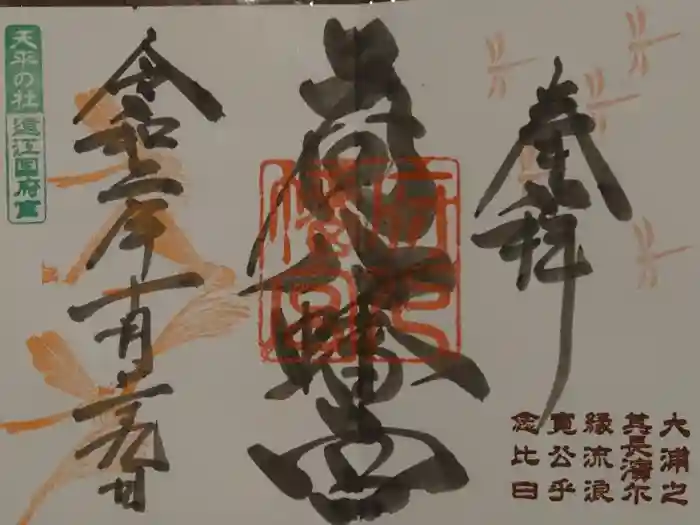 奉拝
府八幡宮
府八
幡宮
令和二年十月
天平の社
遠江国府宮
大浦之
其長濱尓
縁流浪
寛公乎
念比日